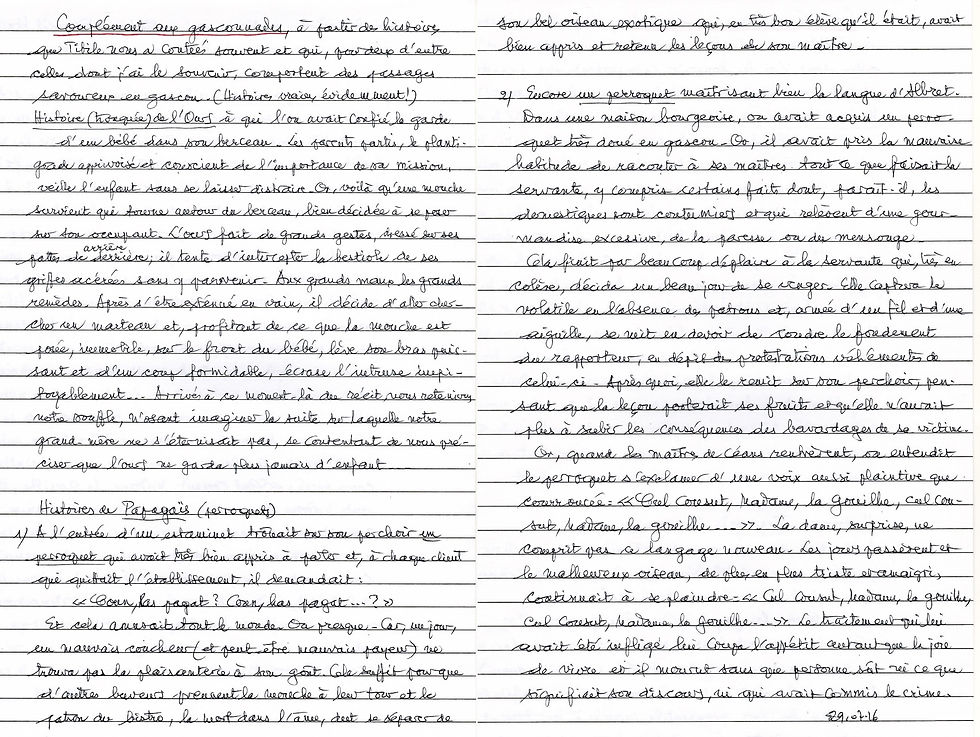 Complément aux gasconnades, à partir des histoires
que Titile nous a contées souvent et qui, pour deux d'entre
celles dont j'ai le souvenir, comportent des passages
savoureux en gascon. (Histoires vraies, évidemment!)
Histoire (tronquée) de l'Ours à qui l'on avait confié la garde
d'un bébé dans son berceau. Les parents partis, le planti-
grade apprivoisé et conscient de l'importance de sa mission,
veille l'enfant sans se laisser distraire. Or, voilà qu'une mouche
survient qui tourne autour du berceau, bien décidée à se poser
sur son occupant. L'ours fait de grands gestes, dressé sur ses
pattes de derrière; il tente d'intercepter la bestiole de ses
arrière
griffes acérées sans y parvenir. Aux grands maux les grands
remèdes. Après s'être exténué en vain, il décide d'aller cher-
cher un marteau et, profitant de ce que la mouche est
posée, immobile, sur le front du bébé, lève son bras puis-
sant et d'un coup formidable, écrase l'intruse impi-
toyablement... Arrivés à ce moment-là du récit, nous retenions
notre souffle, n'osant imaginer la suite sur laquelle notre
grand-mère ne s'éternisait pas, se contentant de nous pré-
ciser que l'ours ne garda plus jamais d'enfant...
Histoires de Papagaïs (perroquets)
1) A l'entrée d'un estaminet trônait sur son perchoir un
perroquet qui avait très bien appris à parler et, à chaque client
qui quittait l'établissement, il demandait:
« Coun, has pagat? Coun, has pagat...? »
Et cela amusait tout le monde. Ou presque. Car, un jour,
un mauvais coucheur (et peut-être mauvais payeur) ne
trouva pas la plaisanterie à son goût. Cela suffit pour que
d'autres buveurs prennent la mouche à leur tour et le
patron du bistro, la mort dans l'âme, dut se séparer de
son bel oiseau exotique qui, en très bon élève qu'il était, avait
bien appris et retenu les leçons de son maître.
2) Encore un perroquet maîtrisant bien la langue d'Albret.
Dans une maison bourgeoise, on avait acquis un perro-
quet très doué en gascon. Or, il avait pris la mauvaise
habitude de raconter à ses maîtres tout ce que faisait la
servante, y compris certains faits dont, paraît-il, les
domestiques sont coutumiers et qui relèvent d'une gour-
mandise excessive, de la paresse ou du mensonge.
Cela finit par beaucoup déplaire à la servante qui, très en
colère, décida un beau jour de se venger. Elle captura le
volatile en l'absence des patrons et, armée d'un fil et d'une
aiguille, se mit en devoir de coudre le fondement
du rapporteur, en dépit des protestations véhémentes de
celui-ci. Après quoi, elle le remit sur son perchoir, pen-
sant que la leçon porterait ses fruits et qu'elle n'aurait
plus à subir les conséquences des bavardages de sa victime.
Or, quand les maîtres de céans rentrèrent, on entendit
le perroquet s'exclamer d'une voix aussi plaintive que
courroucée: « Cul cousut, Madame, la gouilhe, cul cou-
sut, Madame, la gouilhe.... ». La dame, surprise, ne
comprit pas ce langage nouveau. Les jours passèrent et
le malheureux oiseau, de plus en plus triste et amaigri,
continuait à se plaindre: « Cul cousut, Madame, la gouilhe,
cul cousut, Madame, la gouilhe..... ». Le traitement qui lui
avait été infligé lui coupa l'appétit autant que la joie
de vivre et il mourut sans que personne sût ni ce que
signifiait son discours, ni qui avait commis le crime.
29.07.16